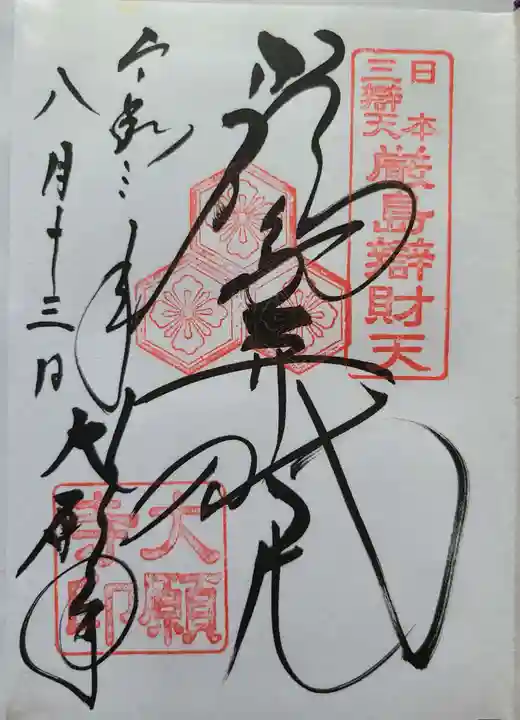 日本
三辯天
厳島辯財天
令和三年
八月十三日
大願寺
大願
寺印